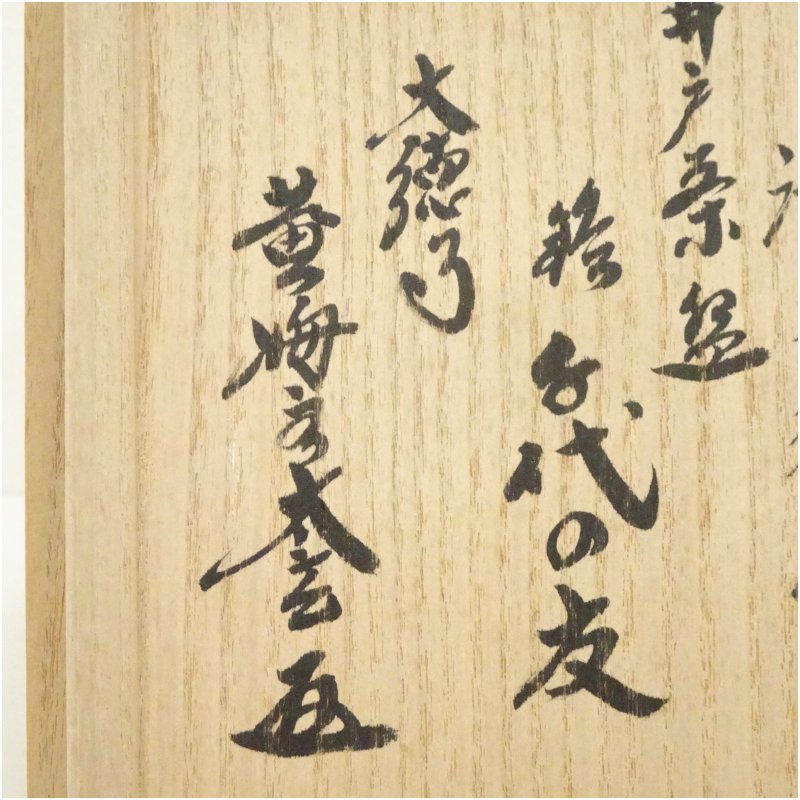 井戸茶盌
銘 千代の友
大徳寺
黄梅院太玄